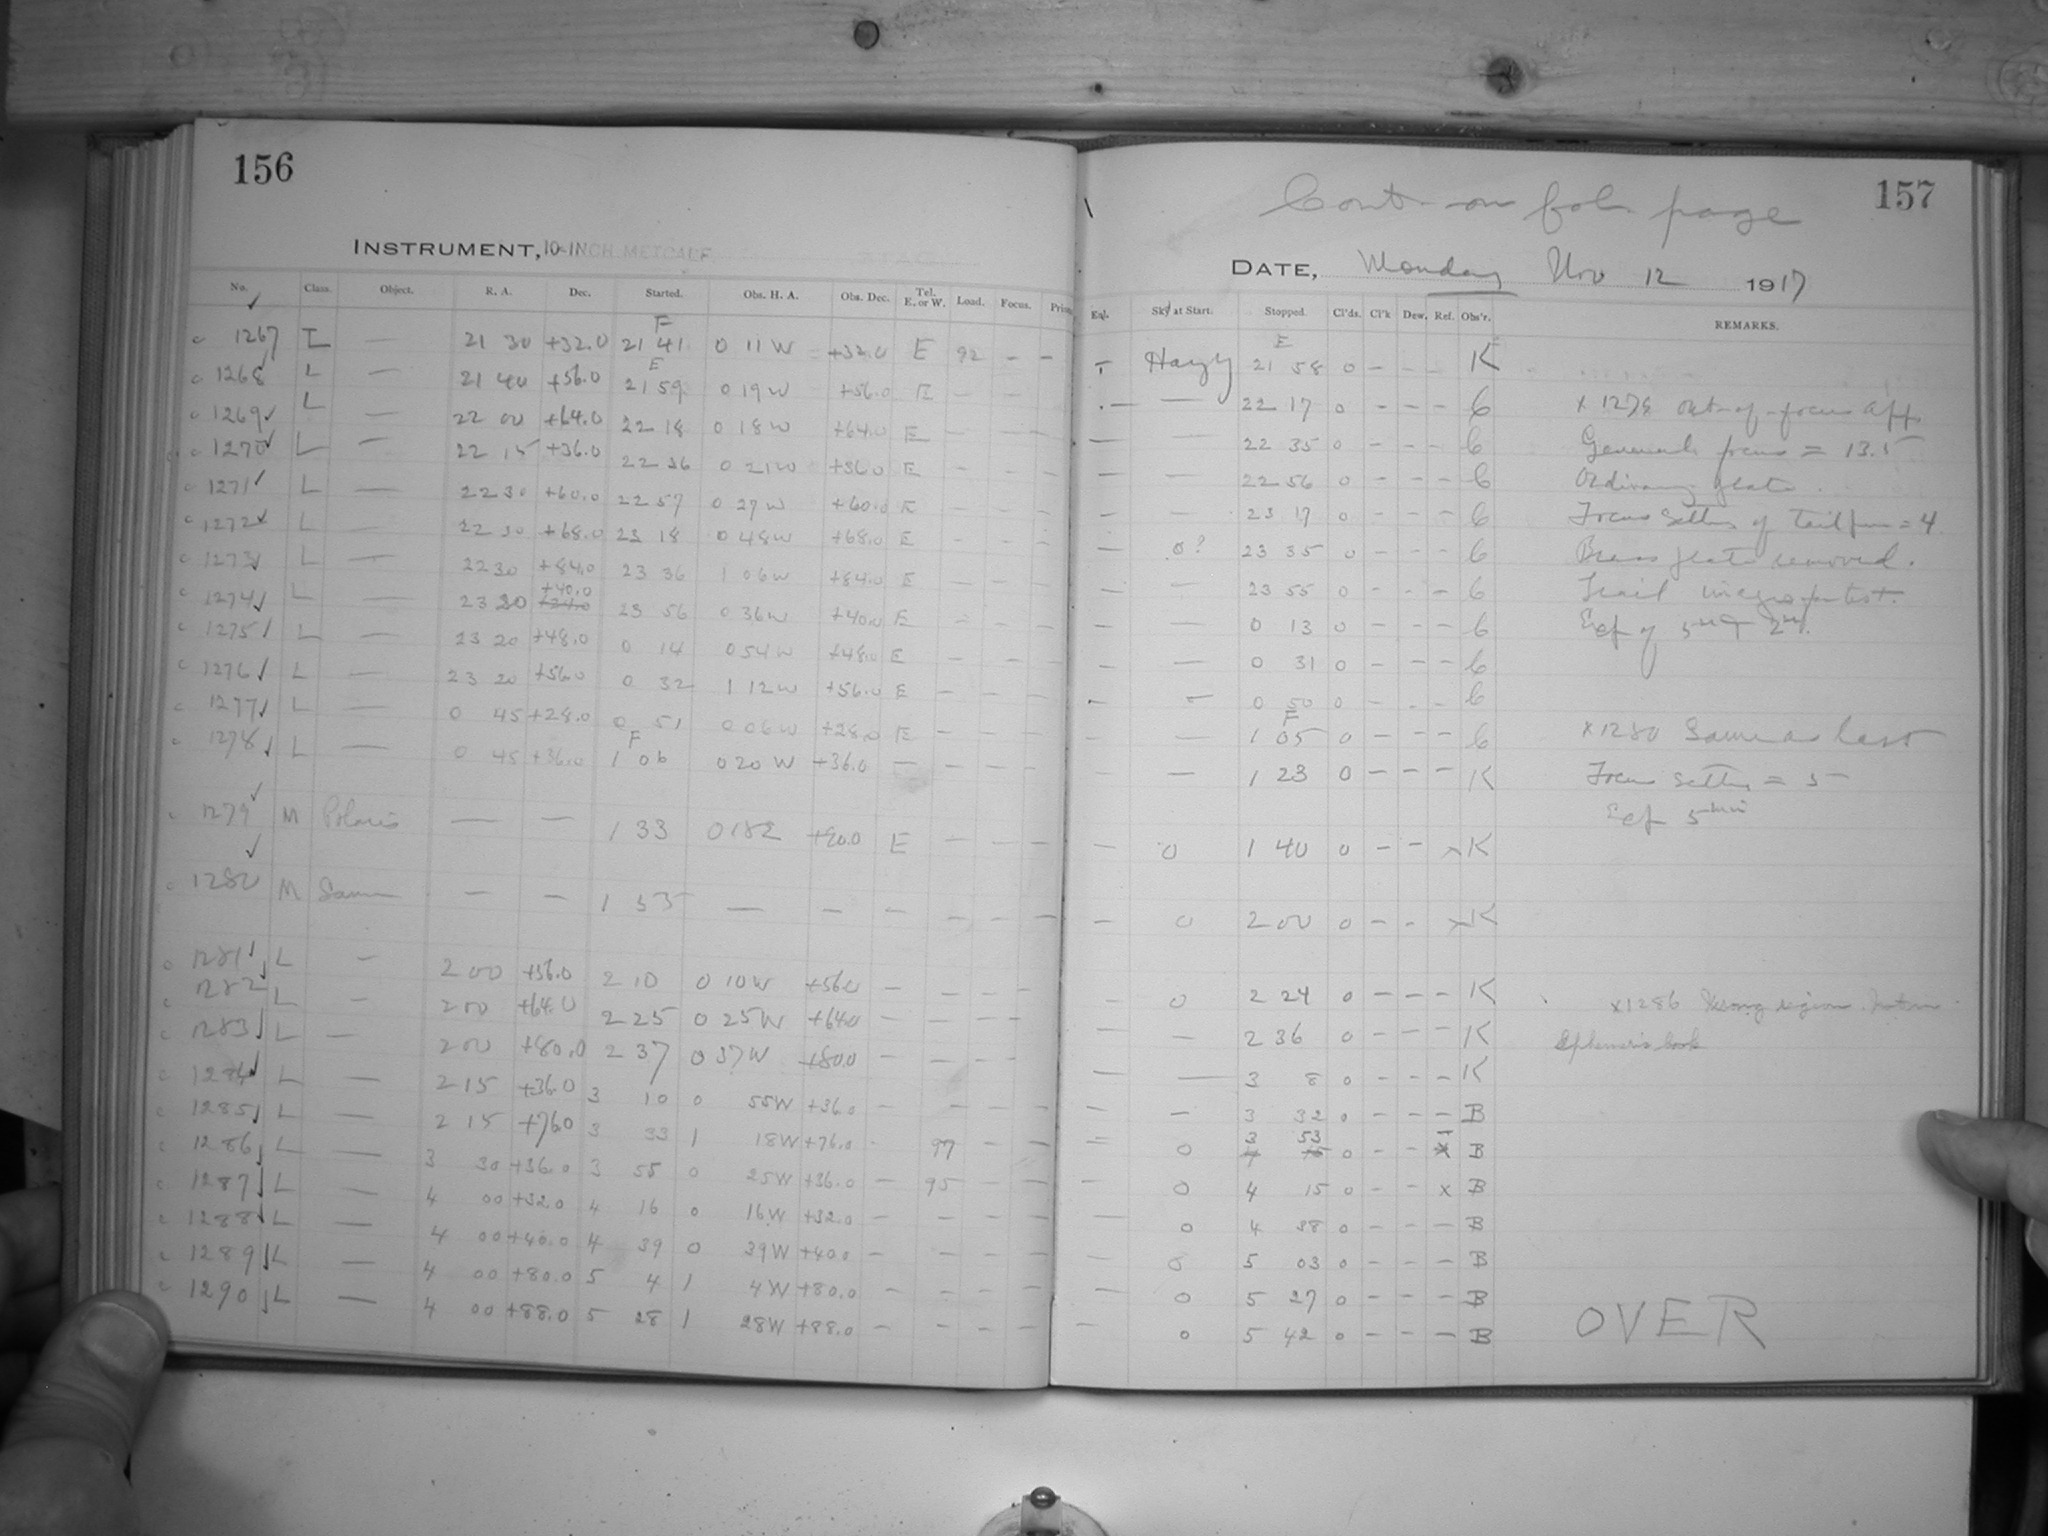 156
INSTRUMENT, 10-INCH METCALF
No. Class. Object. R. A. Dec. Started. Obs. H. A. Obs. Dec. Tel. E. or W. Load. Focus.
1267 L — 21 30 +32.0 F 21 41 0 11 W +32.0 E 92 - -
1268 L — 21 40 +56.0 E 21 59 0 19 W +56.0 E — —
1269 L — 22 00 +64.0 22 18 0 18 W +64.0 E — —
1270 L — 22 15 +36.0 22 36 0 21 W +36.0 E - — -
1271 L — 22 30 +60.0 22 57 0 27 W +60.0 E - — -
1272 L — 22 30 +68.0 23 18 0 48 W +68.0 E - — -
1273 L — 22 30 +84.0 23 36 1 06 W +84.0 E — — -
1274 L — 23 20 +40.0 23 56 0 36 W +40.0 E - — -
1275 L — 23 20 +48.0 0 14 0 54 W +48.0 E — - -
1276 L — 23 20 +56.0 0 32 1 12 W +56.0 E - — -
1277 L — 0 45 +28.0 0 51 0 06 W +28.0 E - — -
1278 L — 0 45 +36.0 F 1 06 0 20 W +36.0 — - — -
1279 M Polaris — — 1 33 +90.0 E — - -
1280 M Same — — 1 55 — — — — — —
1281 L — 2 00 +56.0 2 10 0 10 W +56.0 —
1282 L — 2 00 +64.0 2 25 0 25 W +64.0 — — — -
1283 L — 2 00 +80.0 2 37 0 37 W +80.0 — — — -
1284 L — 2 15 +36.0 3 10 0 55 W +36.0 — — — -
1285 L — 2 15 +76.0 3 33 1 18 W +76.0 - 97 - -
1286 L — 3 30 +36.0 3 55 0 25 W +36.0 — 95 - -
1287 L — 4 00 +32.0 4 16 0 16 W +32.0 — — — —
1288 L — 4 00 +40.0 4 39 0 39 W +40.0 — — — —
1289 L — 4 00 +80.0 5 4 1 4 W +80.0 — - — -
1290 L — 4 00 +88.0 5 28 1 28 W +88.0 — — — —
157
Cont. on fol. page
DATE, Monday Nov 12 1917
Sky at Start. Stopped. Cl'ds. Cl'k Dew. Ref. Obs'r. REMARKS.
Hazy E 21 58 0 - - - K
— — 22 17 0 - - - C x 1279 Out-of-focus App
— — 22 35 0 - - - C General focus = 13.5
— — 22 56 0 - - - C Ordinary plate.
— — 23 17 0 - - - C Focus Setting of = 4
— 0? 23 35 0 - - - C Brass plate removed.
— — 23 55 0 - - - C Trail images test.
— — 0 13 0 - - - C
— — 0 31 0 - - - C
- — 0 50 0 - - - C
— — F 1 05 0 - - - C x 1280 Same as last
— — 1 23 0 - - - K Focus setting = 5
— 0 1 40 0 - - x K
— 0 2 00 0 - - x K
— 0 2 24 0 - - - K x 1286 Wrong region.
— — 2 36 0 - - - K Ephemeris book
— — 3 8 0 - - - K
— — 3 32 0 - - - B
— 0 3 53 0 - - - B
— 0 4 15 0 - - x B
— 0 4 38 0 - - - B
— 0 5 03 0 - - - B
— 0 5 27 0 - - - B
— 0 5 42 0 - - - B
OVER